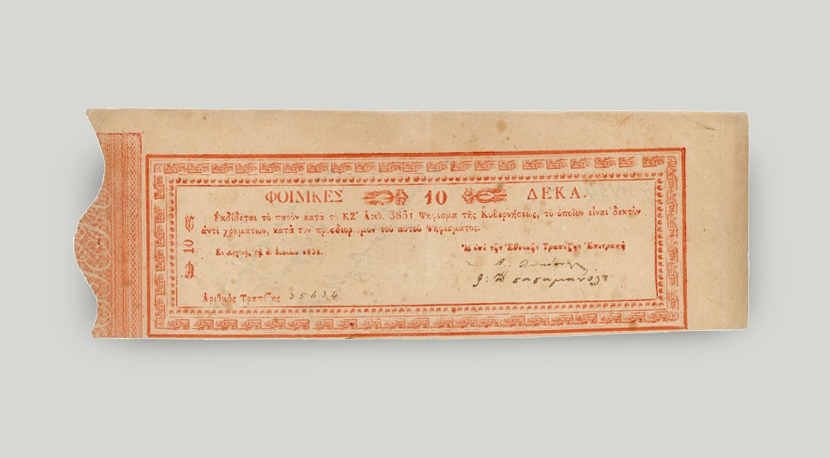 ΦΟΙΝΙΚΕΣ 10 ΔΕΚΑ.
Ἐκδίδεται τὸ παρὸν κατὰ τὸ ΚΖ′ Ἀριθ. 3851 Ψήφισμα τῆς Κυβερνήσεως, τὸ ὁποῖον εἶναι δεκτὸν
ἀντὶ χρημάτων, κατὰ τὸν προσδιορισμὸν τοῦ αὐτοῦ Ψηφίσματος.
Ἐν Αἰγίνῃ, τῇ 1831.
Ἡ ἐπὶ τῆς Ἐθνικῆς Τραπέζης Ἐπιτροπὴ
Ἀριθμὸς Τραπέζης 35634
10